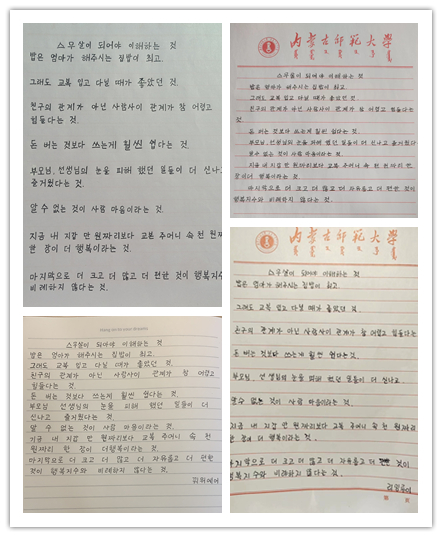 스무살이 되어야 이해하는 것
밥은 엄마가 해주시는 집밥이 최고.
그래도 교복 입고 다닐 때가 좋았던 것.
친구의 관계가 아닌 사람사이 관계가 참 어렵고
힘들다는 것.
돈 버는 것보다 쓰는게 훨씬 쉽다는 것.
부모님, 선생님의 눈을 피해 했던 일들이 더 신나고
즐거웠다는 것.
알 수 없는 것이 사람 마음이라는 것.
지금 내 지갑 만 원짜리보다 교복 주머니 속 천 원짜리
한 장이 더 행복이라는 것.
마지막으로 더 크고 더 많고 더 편한 것이 행복지수와
비례하지 않다는 것.
스무살이 되어야 이해하는 것
밥은 엄마가 해주시는 집밥이 최고.
그래도 교복 입고 다닐 때가 좋았던 것.
친구의 관계가 아닌 사람사이 관계가 참 어렵고
힘들다는 것.
돈 버는 것보다 쓰는게 훨씬 쉽다는 것.
부모님 선생님의 눈을 피해 했던 일들이 더
신나고 즐거웠다는 것.
알 수 없는 것이 사람 마음이라는 것.
지금 내 지갑 만 원짜리보다 교복 주머니 속 천
원짜리 한 장이 더행복이라는 것.
마지막으로 더 크고 더 많고 더 자유롭고 더 편한
것이 행복지수와 비례하지 않다는 것.
内蒙古师范大学
스무살이 되어야 이해하는 것
밥은 엄마가 해주시는 집밥이 최고.
그래도 교복 입고 다닐 때가 좋았던 것.
친구의 관계가 아닌 사람사이 관계가 참 어렵고 힘들다는
것.
돈 버는 것보다 쓰는게 훨씬 쉽다는 것.
부모님, 선생님의 눈을 피해 했던 일들이 더 신나고 즐거웠다
알수 없는 것이 사람 마음이라는 것.
지금 내 지갑 만 원짜리보다 교복 주머니 속 천 원짜리 한
장이 더 행복이라는 것.
마지막으로 더 크고 더 많고 더 자유롭고 더 편한 것이
행복지수와 비례하지 않다는 것.
内蒙古师范大学
스무살이 되어야 이해하는 것
밥은 엄마가 해주시는 집밥이 최고.
그래도 교복 입고 다닐 때가 좋았던 것.
친구의 관계가 아닌 사람사이 관계가 참 어렵고 힘들다는
돈 버는 것보다 쓰는게 훨씬 쉽다는 것.
부모님, 선생님의 눈을 피해 했던 일들이 더 신나고
알수 없는 것이 사람 마음이라는 것.
지금 내 지갑 만 원짜리보다 교복 주머니 속 천 원짜리
한 장이 더 행복이라는 것.
마지막으로 더 크고 더 많고 더 자유롭고 더 편한 것이
행복지수와 비례하지 않다는 것.